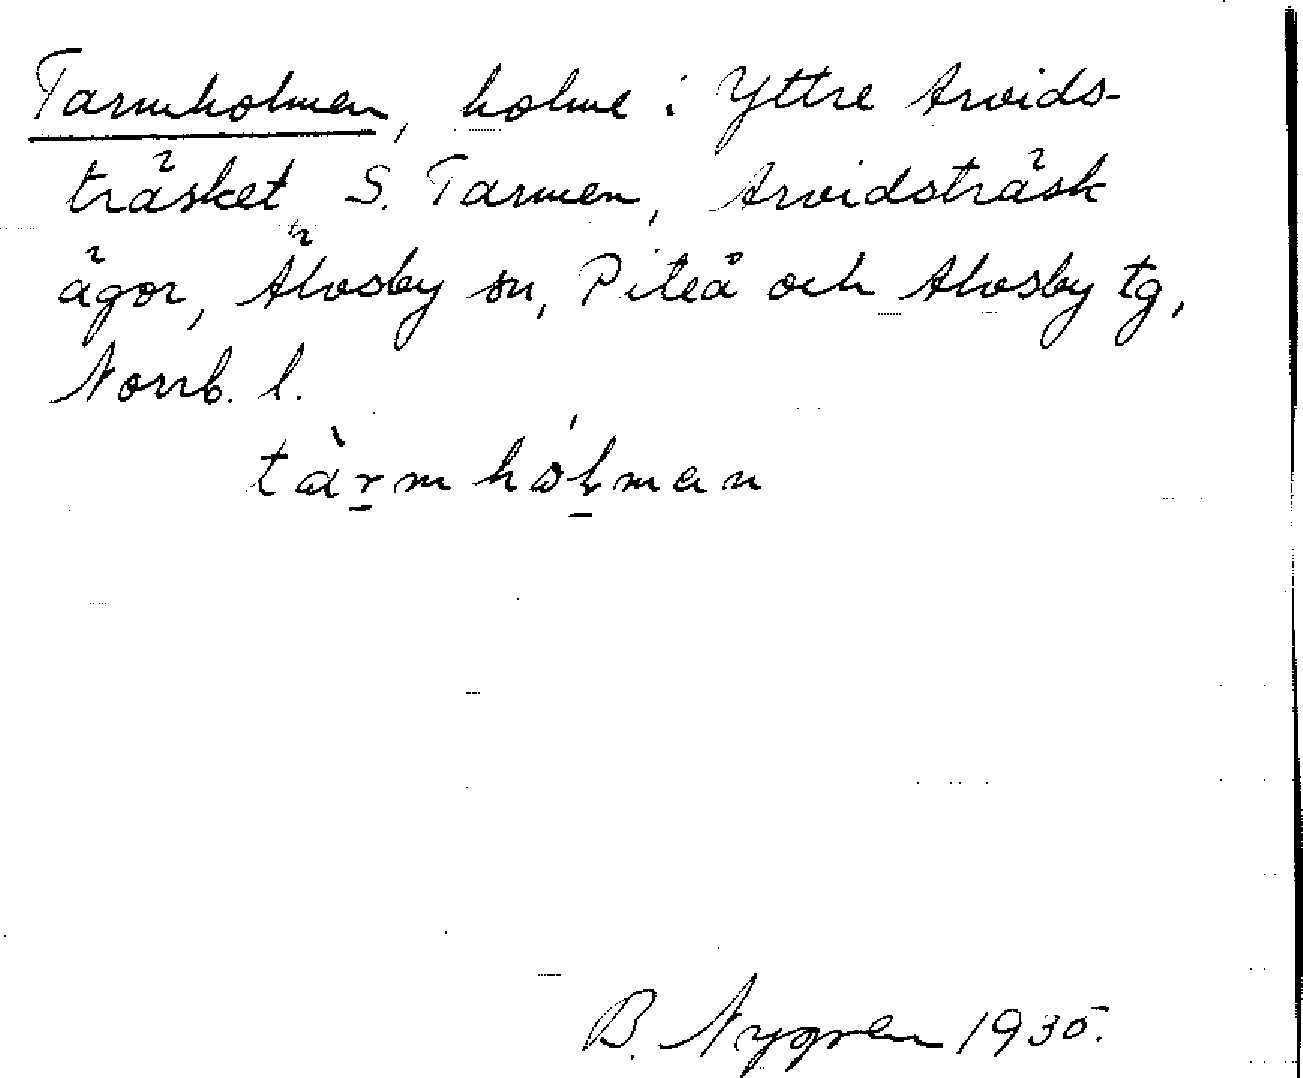 Tarmholmen, holme i Yttre Arvids-
träsket S. Tarmen, Arvidsträsk
ägor, Älvsby sn, Piteå och Älvsby tg,
Norrb. l.
tàr̲mhól̲man
B. Nygren 1935.